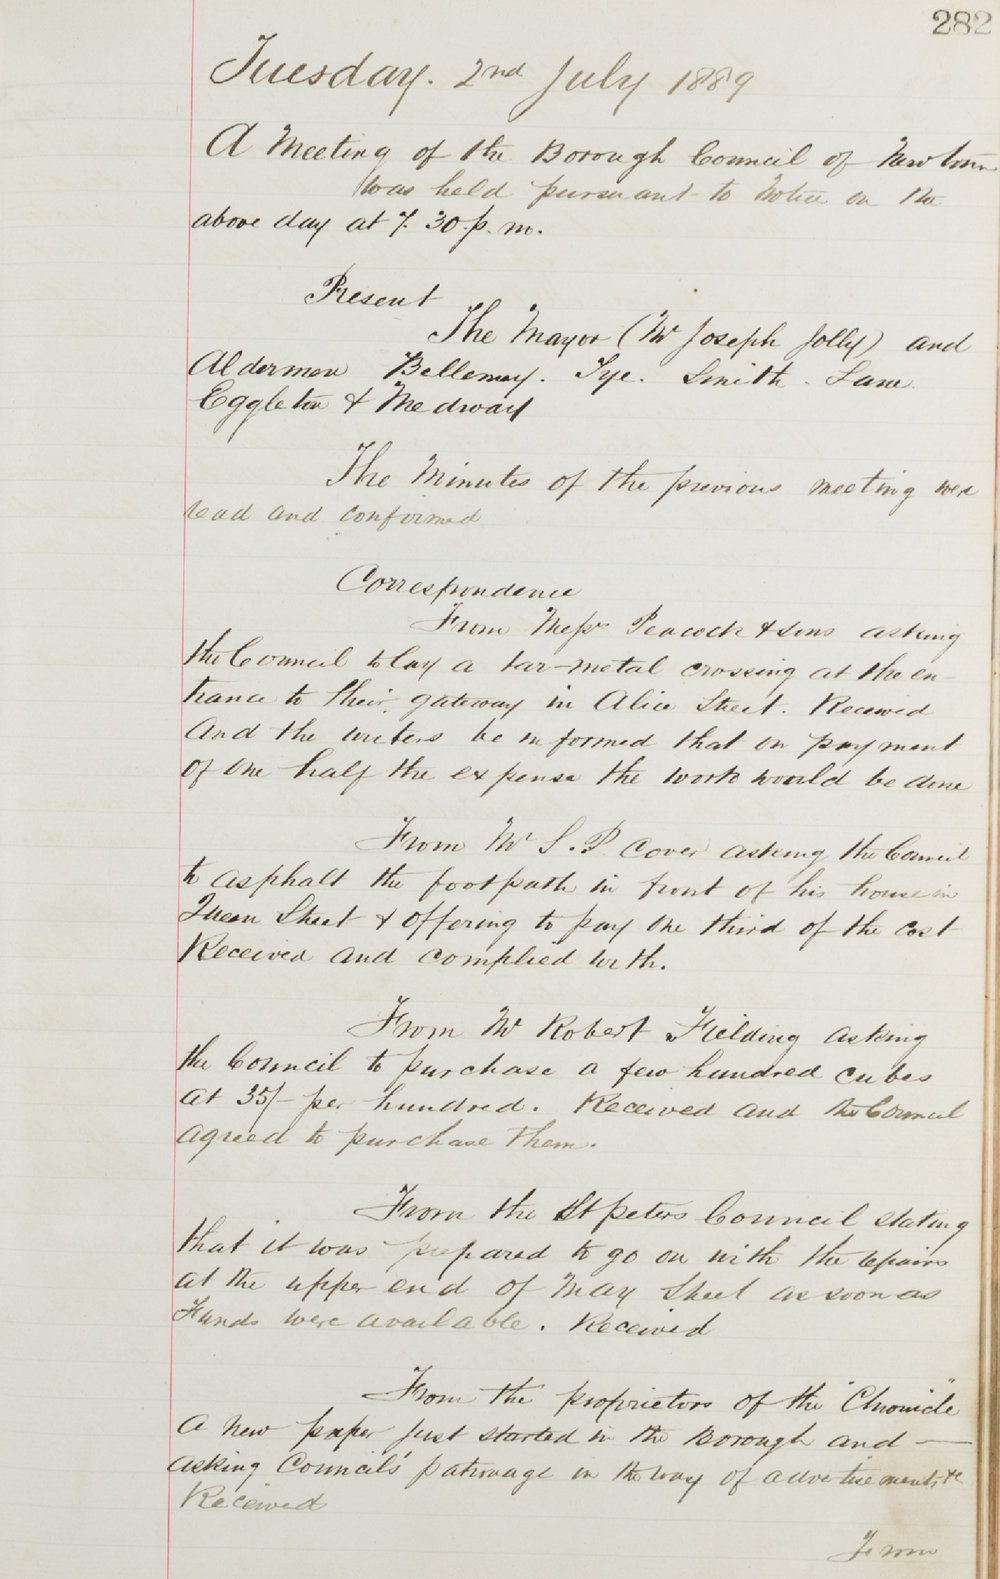 282
Tuesday. 2nd July 1889
A Meeting of the Borough Council of Newtown
was held pursuant to Notice on the
above day at 7.30 p.m.
Present
The Mayor (Mr Joseph Jolly) and
Aldermen Bellemey. Tye. Smith. Lane
Eggleton & Medward
The Minutes of the previous meeting were
read and confirmed
Correspondence
From Messrs Peacock & Sons asking
the Council to lay a tar-metal crossing at the en-
trance to their gateway in Alice Street. Received
And the writers be informed that on payment
of one half the expense the work would be done
From Mr S. P. Cover asking the Council
to asphalt the footpath in front of his house in
Queen Street & offering to pay one third of the cost
Received and complied with.
From Mr Robert Fielding asking
the Council to purchase a few hundred cubes
at 35/- per hundred. Received and the Council
agreed to purchase them.
From the St Peters Council stating
that it was prepared to go on with the repairs
at the upper end of May Street as soon as
Funds were available. Received
From the proprietors of the "Chronicle"
a new paper just started in the Borough and —
asking Council's patronage in the way of advertisements &c
Received
From